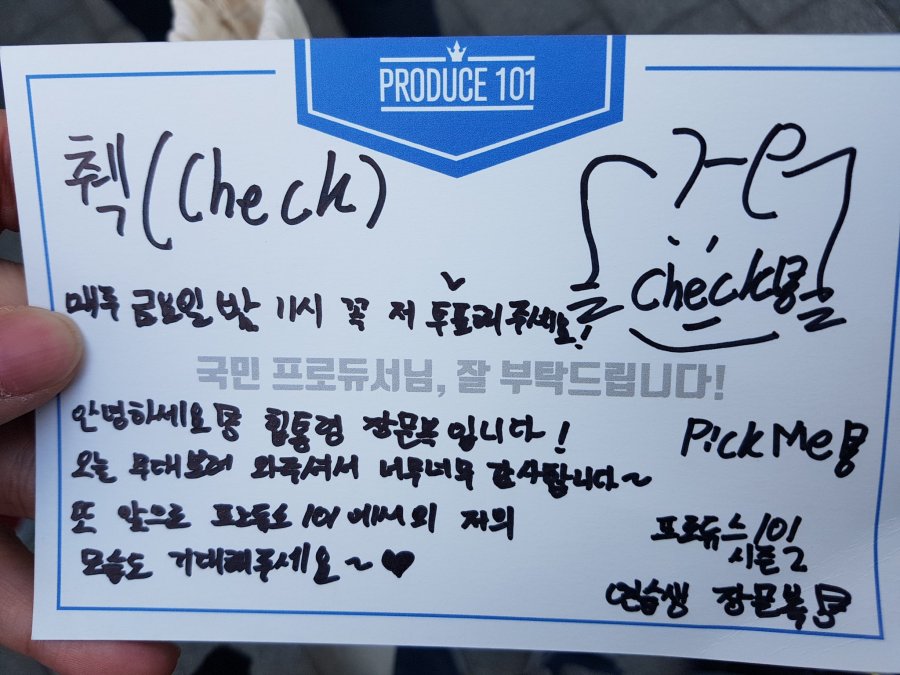 PRODUCE 101
췍(Check)
Check몽
매주 금요일 밤 11시 꼭 저 투표해주세요!
국민 프로듀서님, 잘 부탁드립니다!
안녕하세요몽 힙통령 장문복입니다!
PickMe몽
오늘 무대보러 와주셔서 너무너무 감사합니다~
또 앞으로 프로듀스101에써의 저의
모습도 기대해주세요~♥
프로듀스101
시즌2
연습생 장문복몽